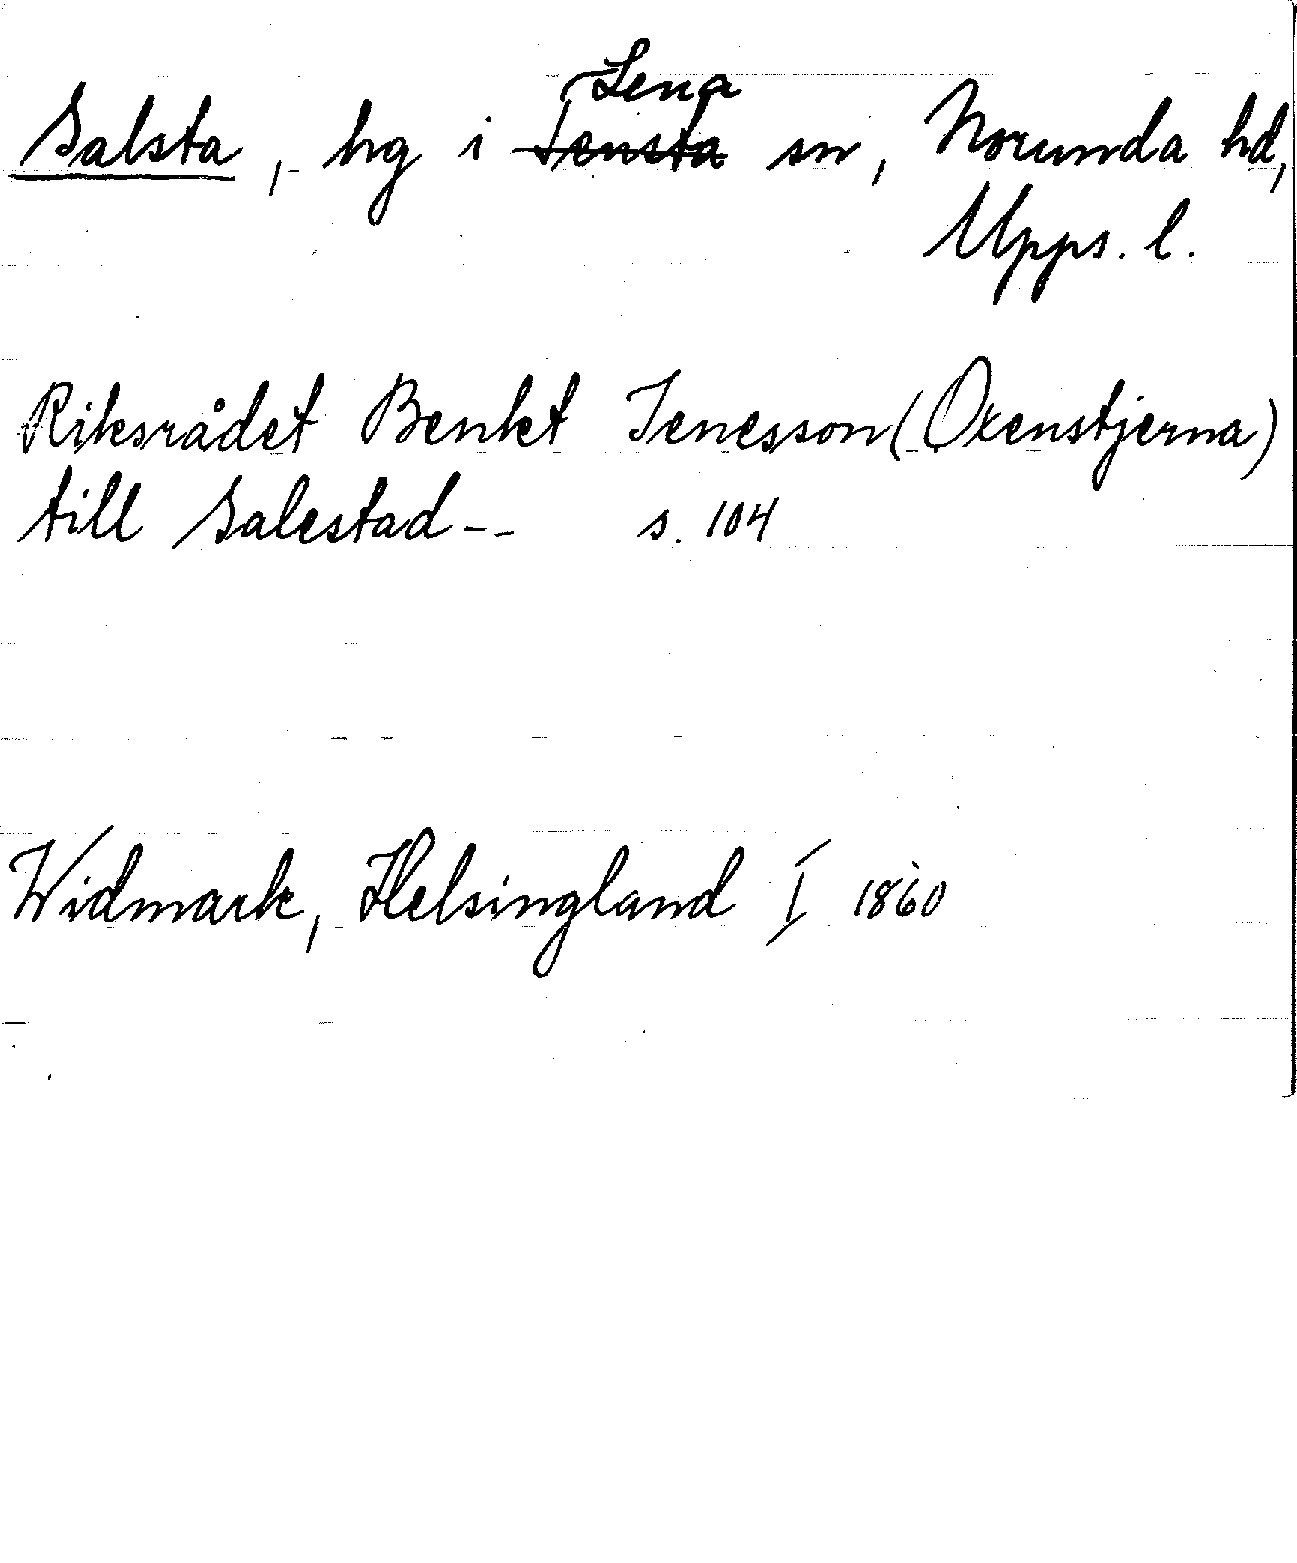 Lena
Salsta, hg i Tensta sn, Norunda hd,
Upps. l.
Riksrådet Benkt Jenesson (Oxenstjerna)
till Salestad -- s. 104
Widmark, Helsingland I 1860